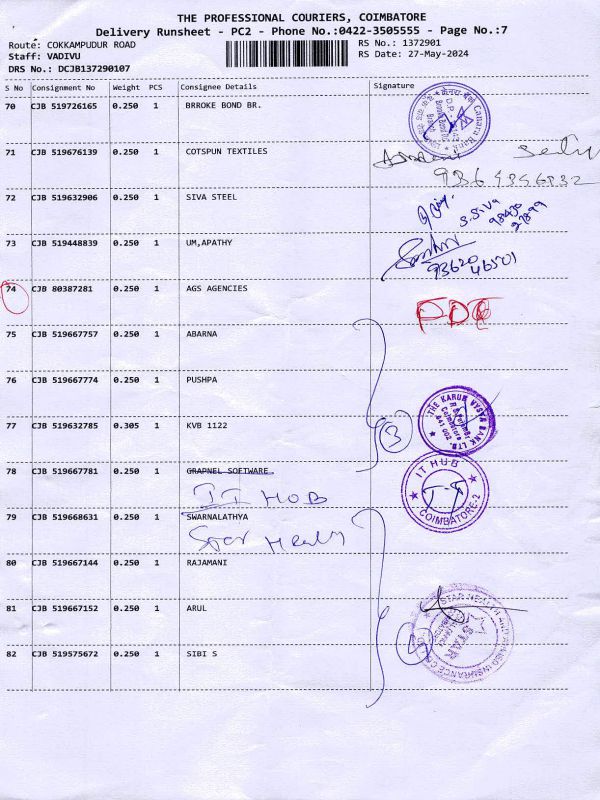 THE PROFESSIONAL COURIERS, COIMBATORE
Delivery Runsheet - PC2 - Phone No.:0422-3505555 - Page No.:7
Route: COKKAMPUDUR ROAD RS No.: 1372901
Staff: VADIVU RS Date: 27-May-2024
DRS No.: DCJB137290107
S No Consignment No Weight PCS Consignee Details Signature
70 CJB 519726165 0.250 1 BRROKE BOND BR.
Canara Bank
71 CJB 519676139 0.250 1 COTSPUN TEXTILES
72 CJB 519632906 0.250 1 SIVA STEEL
S.Siva
98430
27899
73 CJB 519448839 0.250 1 UM,APATHY
93620
46501
74 CJB 80387281 0.250 1 AGS AGENCIES
75 CJB 519667757 0.250 1 ABARNA
76 CJB 519667774 0.250 1 PUSHPA
77 CJB 519632785 0.305 1 KVB 1122
3
THE KARUR VYSYA BANK LTD.
78 CJB 519667781 0.250 1 GRAPNEL SOFTWARE.
IT HUB
IT HUB
COIMBATORE-2
79 CJB 519668631 0.250 1 SWARNALATHYA
Star Health
80 CJB 519667144 0.250 1 RAJAMANI
81 CJB 519667152 0.250 1 ARUL
STAR HEALTH AND ALLIED INSURANCE
STAR
82 CJB 519575672 0.250 1 SIBI S